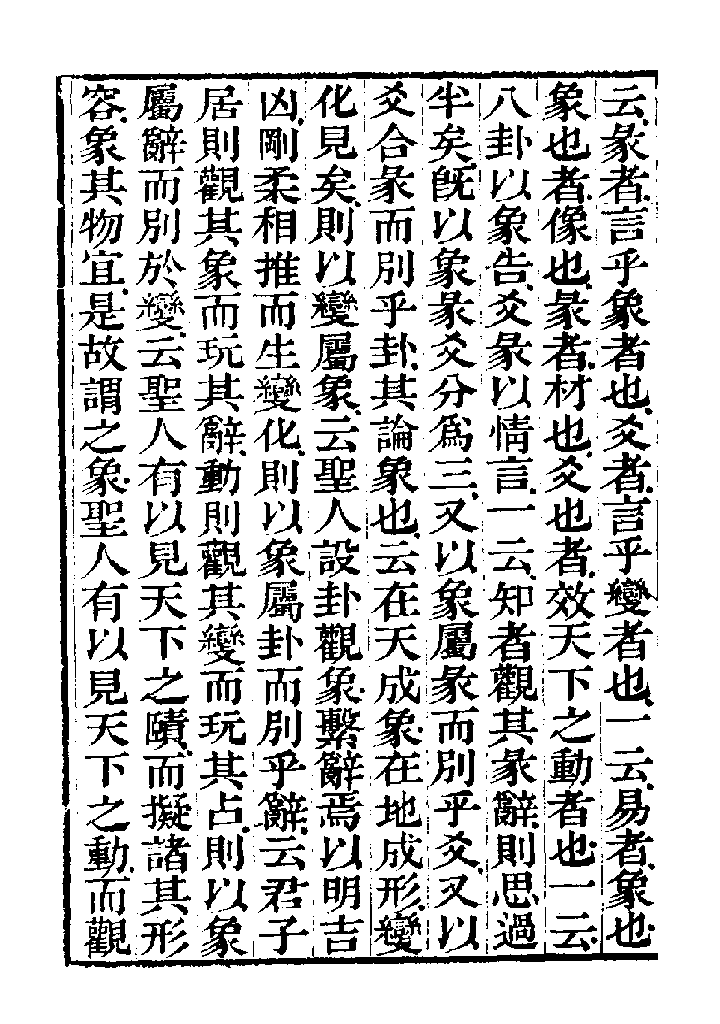 云彖者言乎象者也爻者言乎變者也一云易者象也
象也者像也彖者材也爻也者效天下之動者也一云
八卦以象告爻彖以情言一云知者觀其彖辭則思過
半矣旣以象彖爻分爲三又以象屬彖而別乎爻又以
爻合彖而別乎卦其論象也云在天成象在地成形變
化見矣則以變屬象云聖人設卦觀象繫辭焉以明吉
凶剛柔相推而生變化則以象屬卦而別乎辭云君子
居則觀其象而玩其辭動則觀其變而玩其占則以象
屬辭而別於變云聖人有以見天下之賾而擬諸其形
容象其物宜是故謂之象聖人有以見天下之動而觀